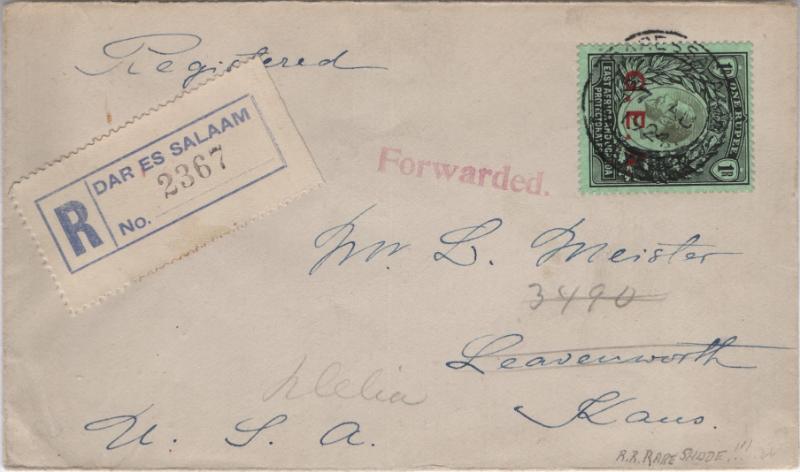 Registered
R
DAR ES SALAAM
No. 2367
Forwarded.
G.E.A.
EAST AFRICA AND UGANDA
PROTECTORATES
ONE RUPEE
1R
1R
Mr L. Meister
3490
Leavenworth
Kans.
U. S. A.
R.R. RARE SHADE!!!